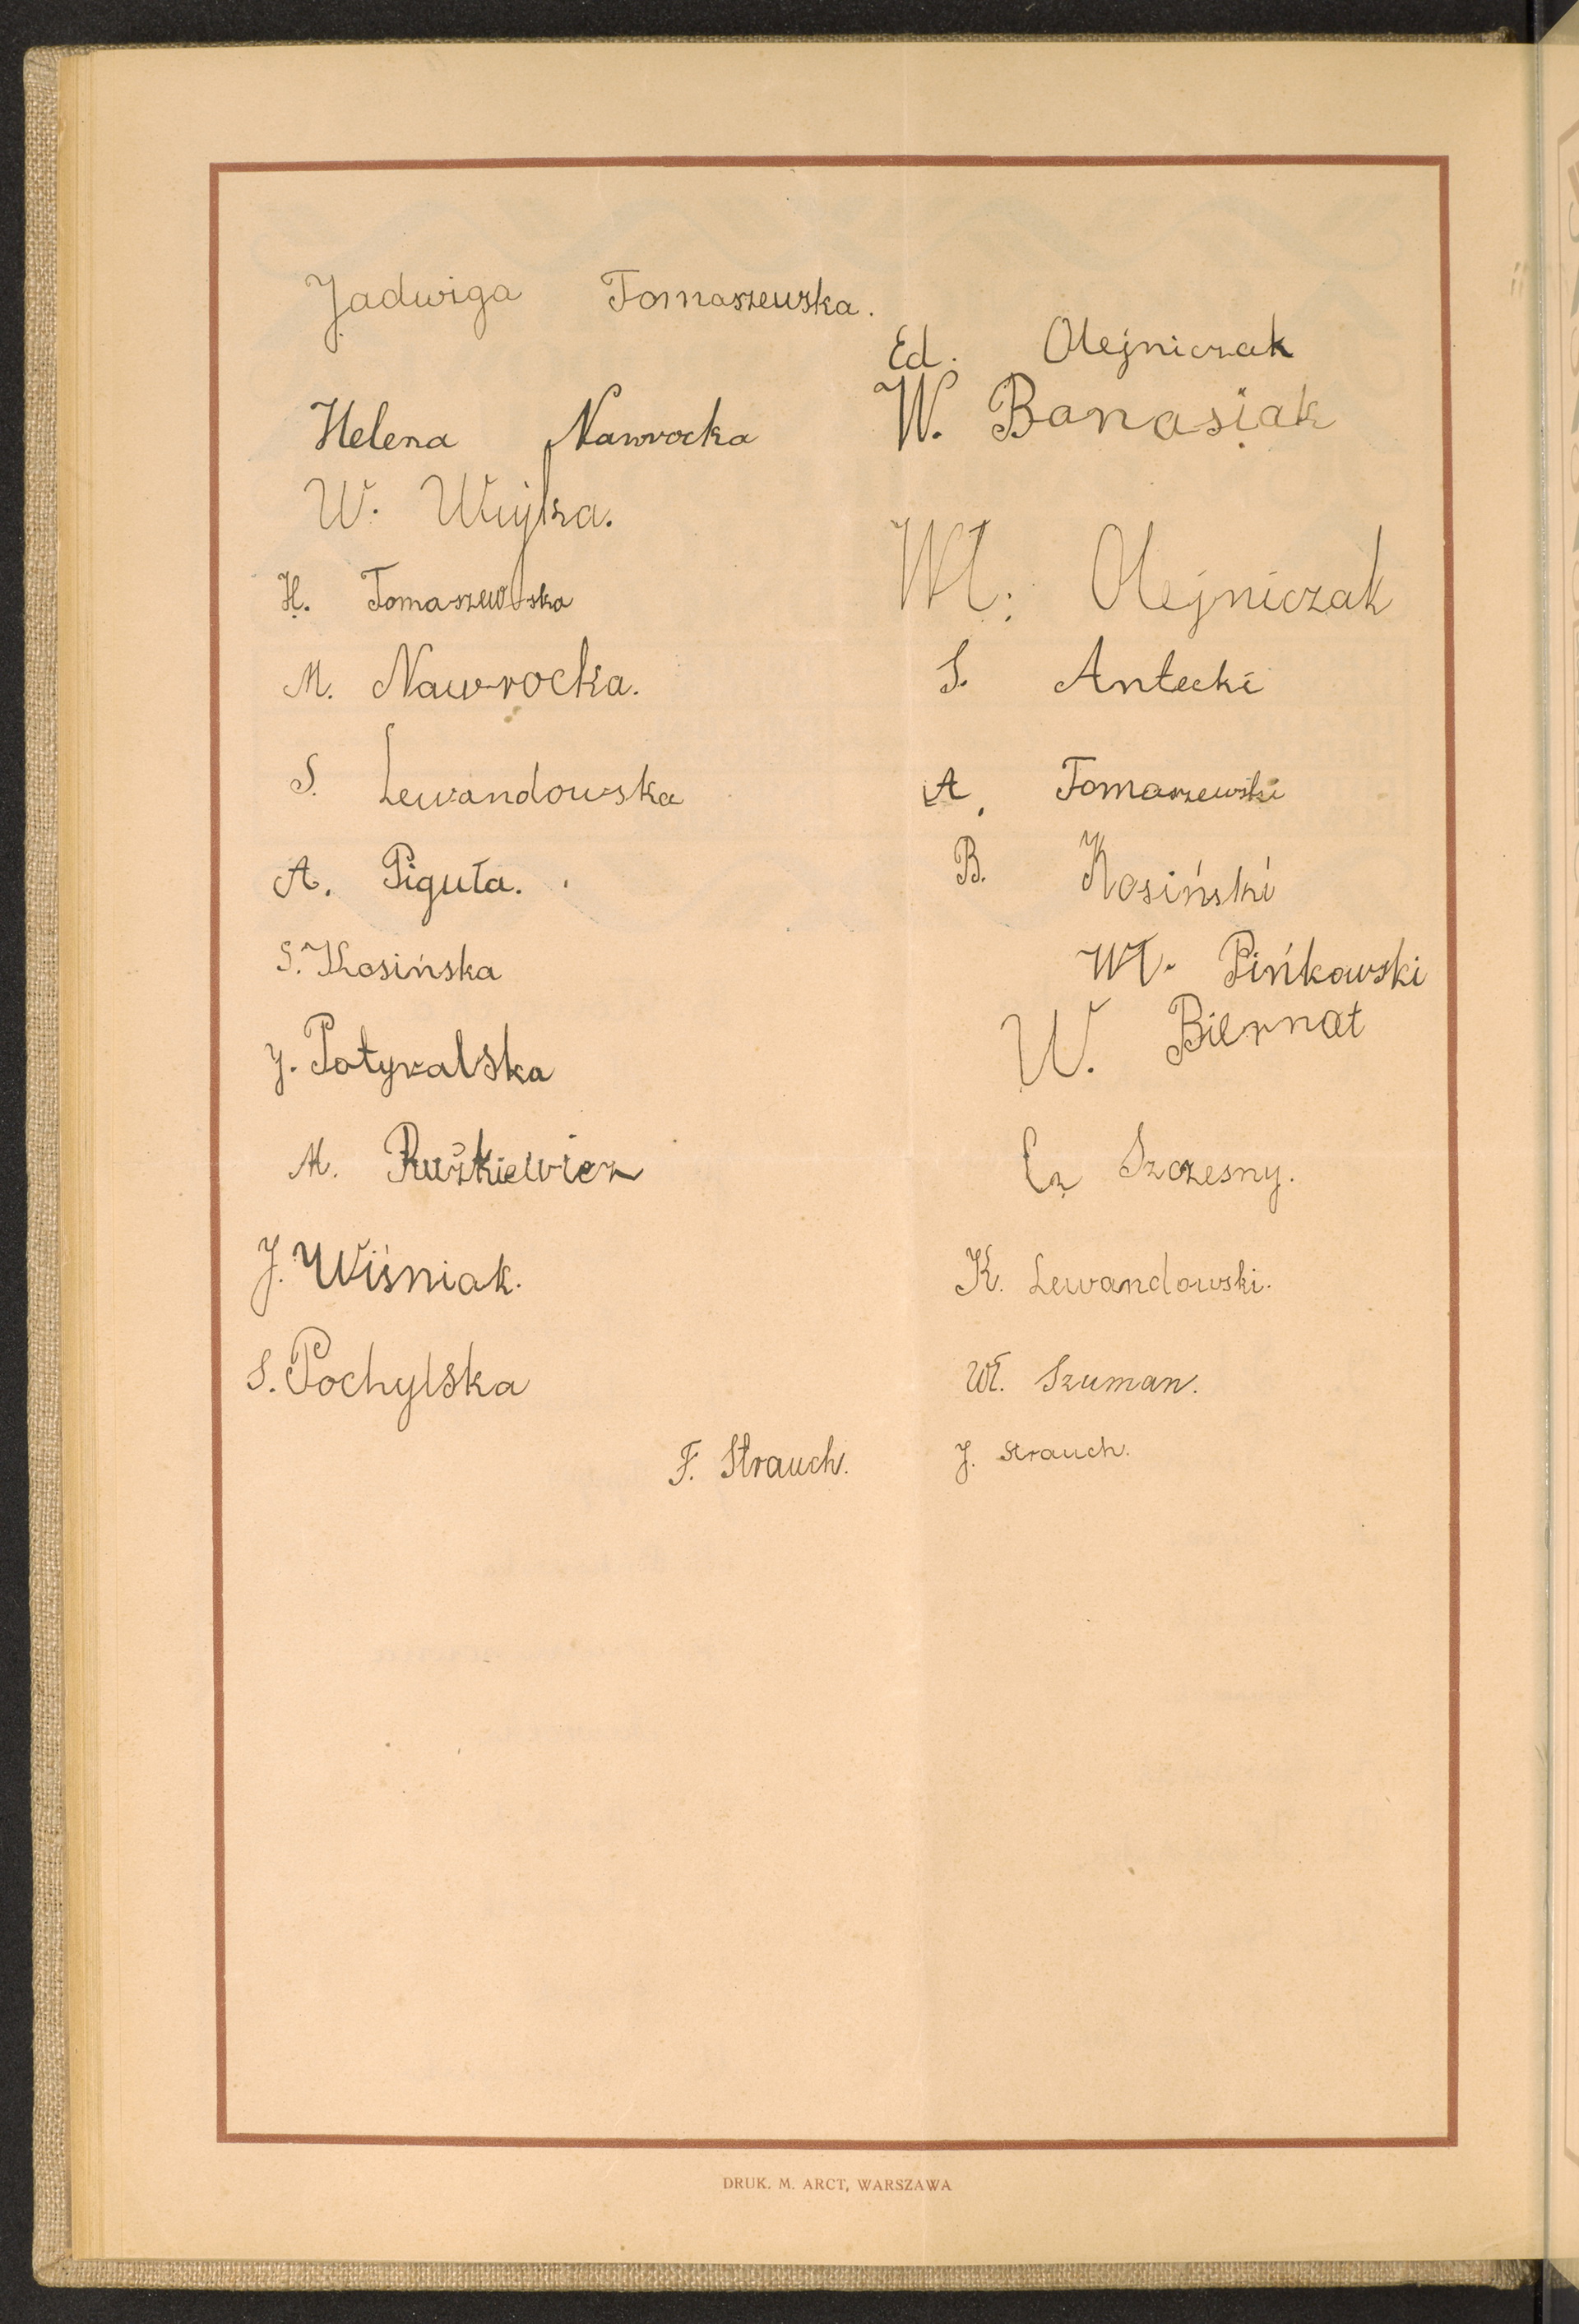 Jadwiga Tomaszewska.
Helena Nawrocka
W. Wujka.
H. Tomaszewska
M. Nawrocka.
S. Lewandowska
A. Piguła.
S. Kosińska
J. Potyralska
M. Ruśkiewicz
J. Wiśniak.
S. Pochylska
F. Strauch.
Ed. Olejniczak
W. Banasiak
Wł. Olejniczak
S. Antecki
A. Tomaszewski
B. Kosiński
Wł. Pińkowski
W. Biernat
Cz Szczesny.
K. Lewandowski.
Wł. Szuman.
J. Strauch.
DRUK. M. ARCT, WARSZAWA